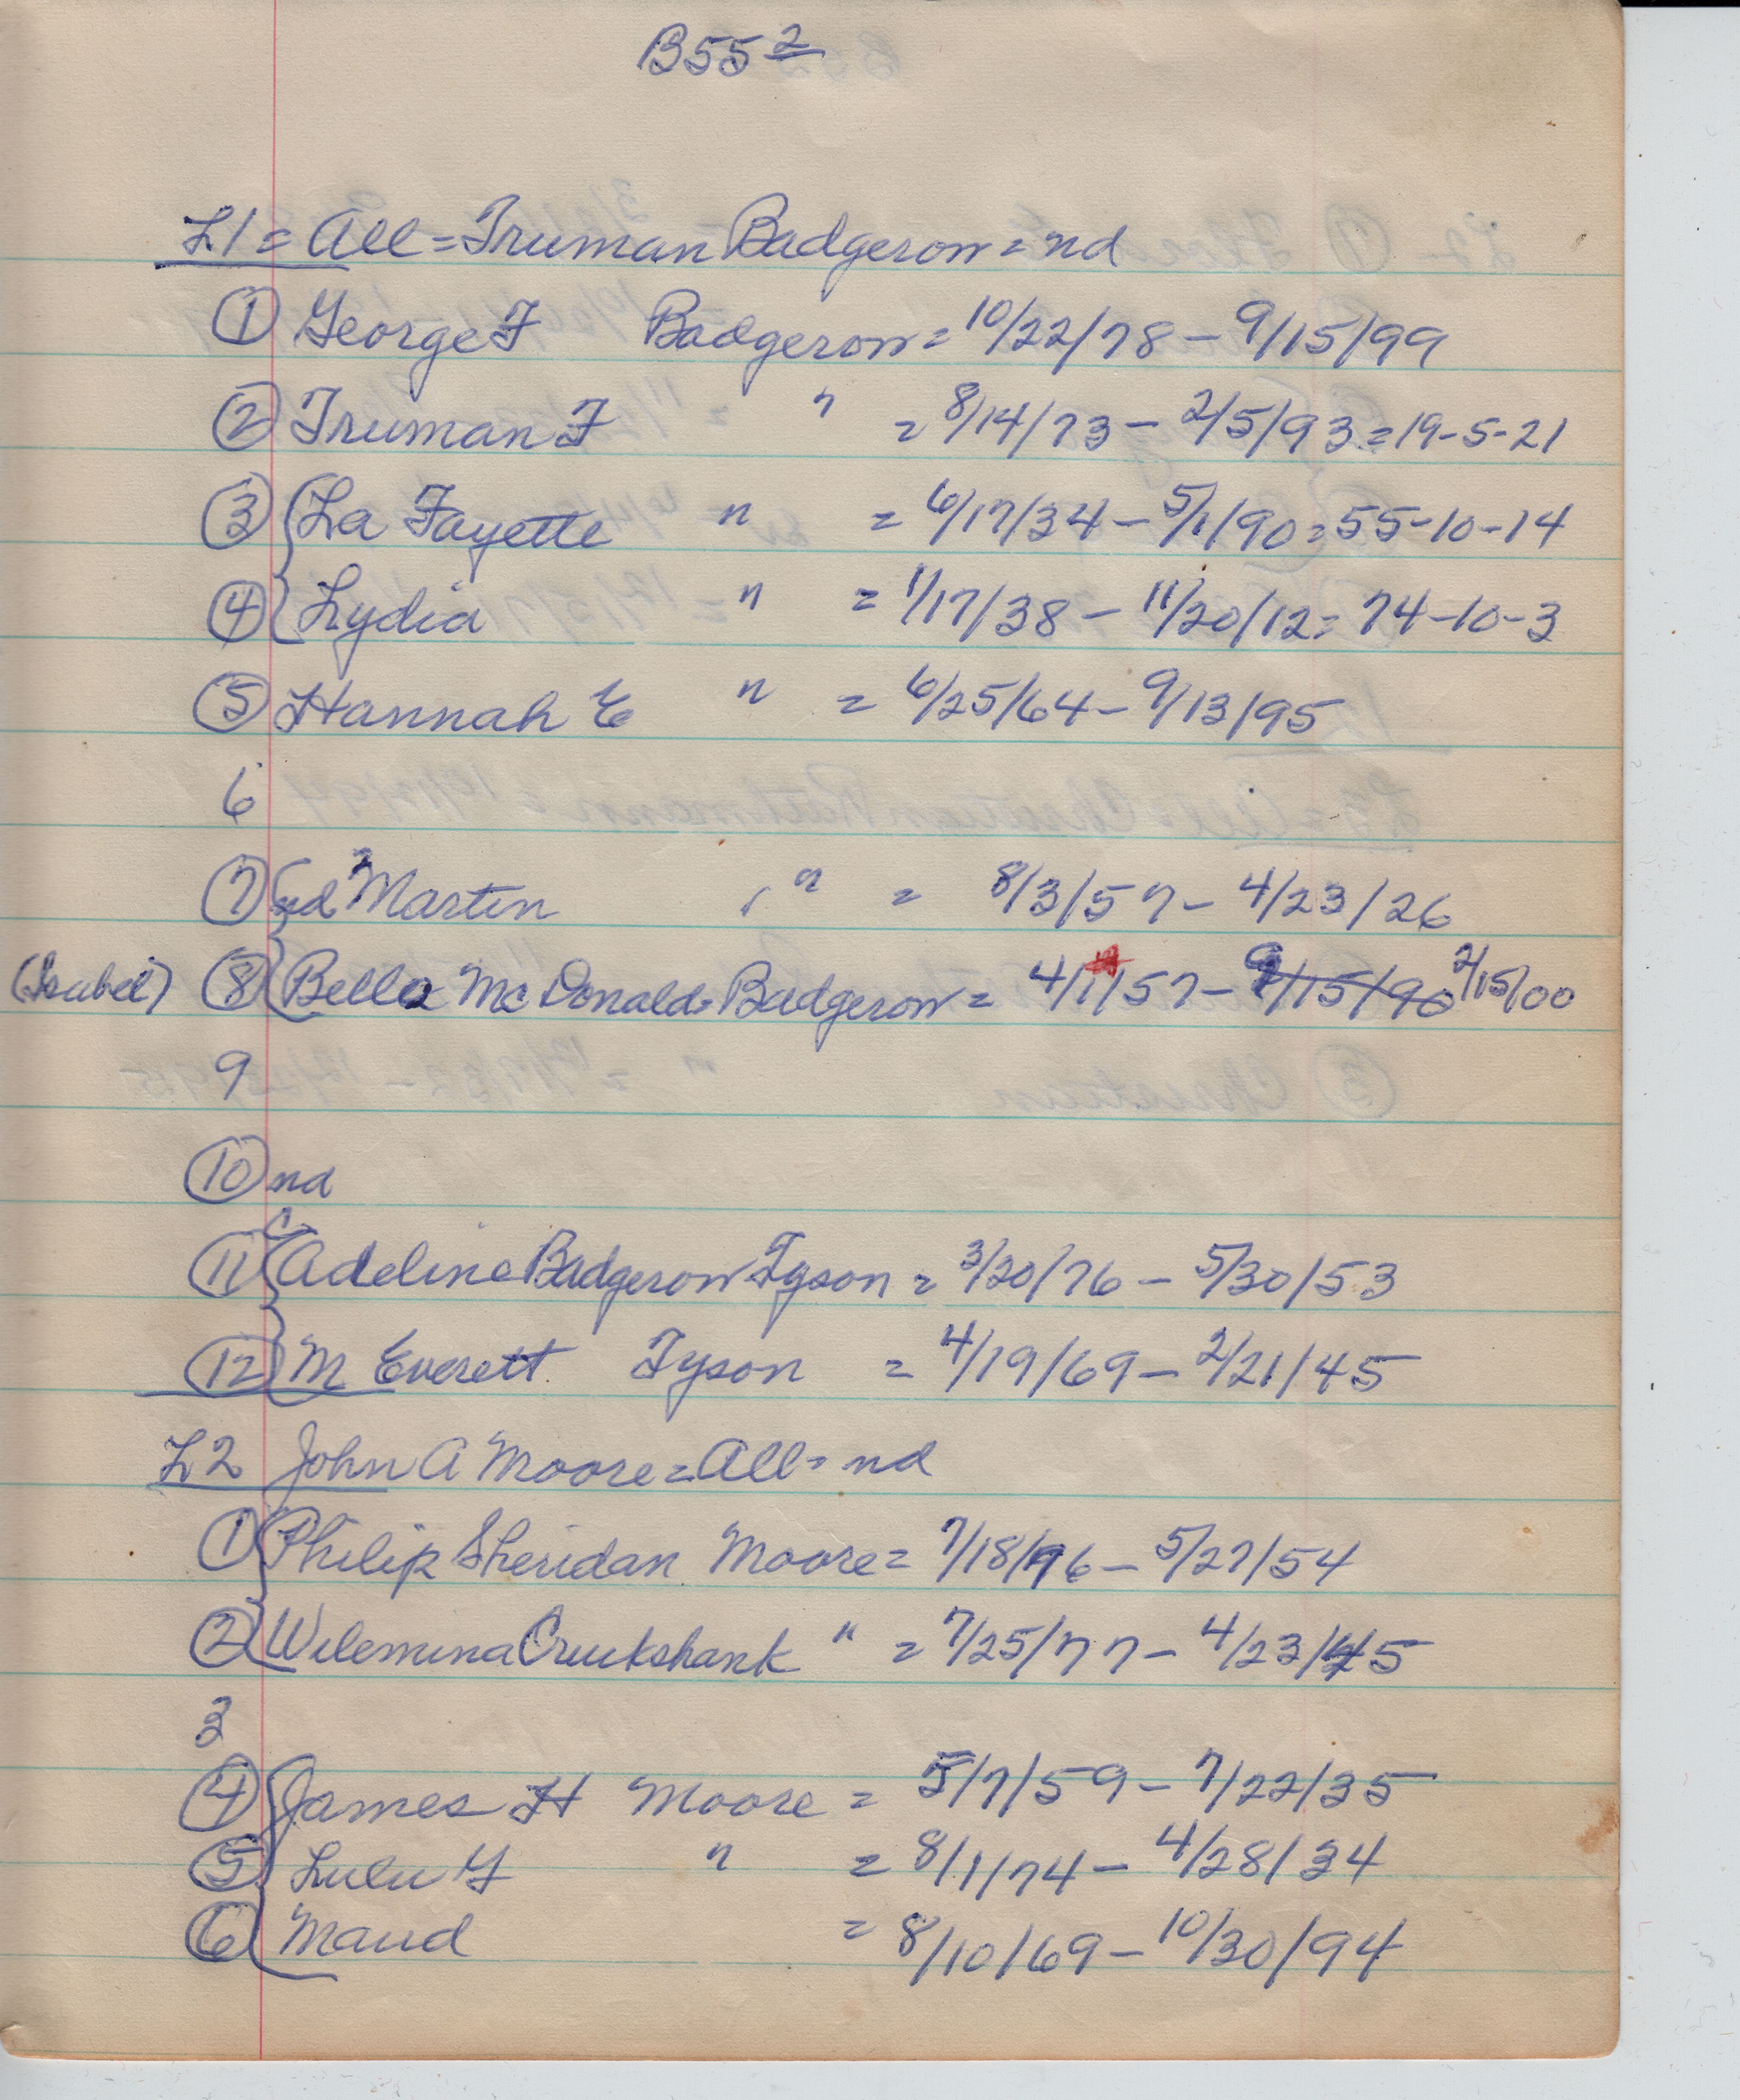 B55 2
L1 = All = Truman Badgerow = nd
1 George F Badgerow = 10/22/78 - 9/15/99
2 Truman F " = 8/14/73 - 2/5/93 = 19-5-21
3 La Fayette " = 6/17/34 - 5/1/90 = 55-10-14
4 Lydia " = 1/17/38 - 11/20/12 = 74-10-3
5 Hannah E " = 6/25/64 - 9/13/95
6
7 Martin " = 8/3/57 - 4/23/26
(Isabel) 8 Bella McDonald = Badgerow = 4/1/57 - 9/15/90 2/15/00
9
10 nd
11 Adeline Badgerow Tyson = 3/20/76 - 5/30/53
12 M Everett Tyson = 4/19/69 - 2/21/45
L2 John A Moore = All = nd
1 Philip Sheridan Moore = 7/18/76 - 5/27/54
2 Wilemina Cruikshank " = 7/25/77 - 4/23/45
3
4 James H Moore = 5/7/59 - 7/22/35
5 Lulu Y " = 8/1/74 - 4/28/34
6 Maud = 8/10/69 - 10/30/94